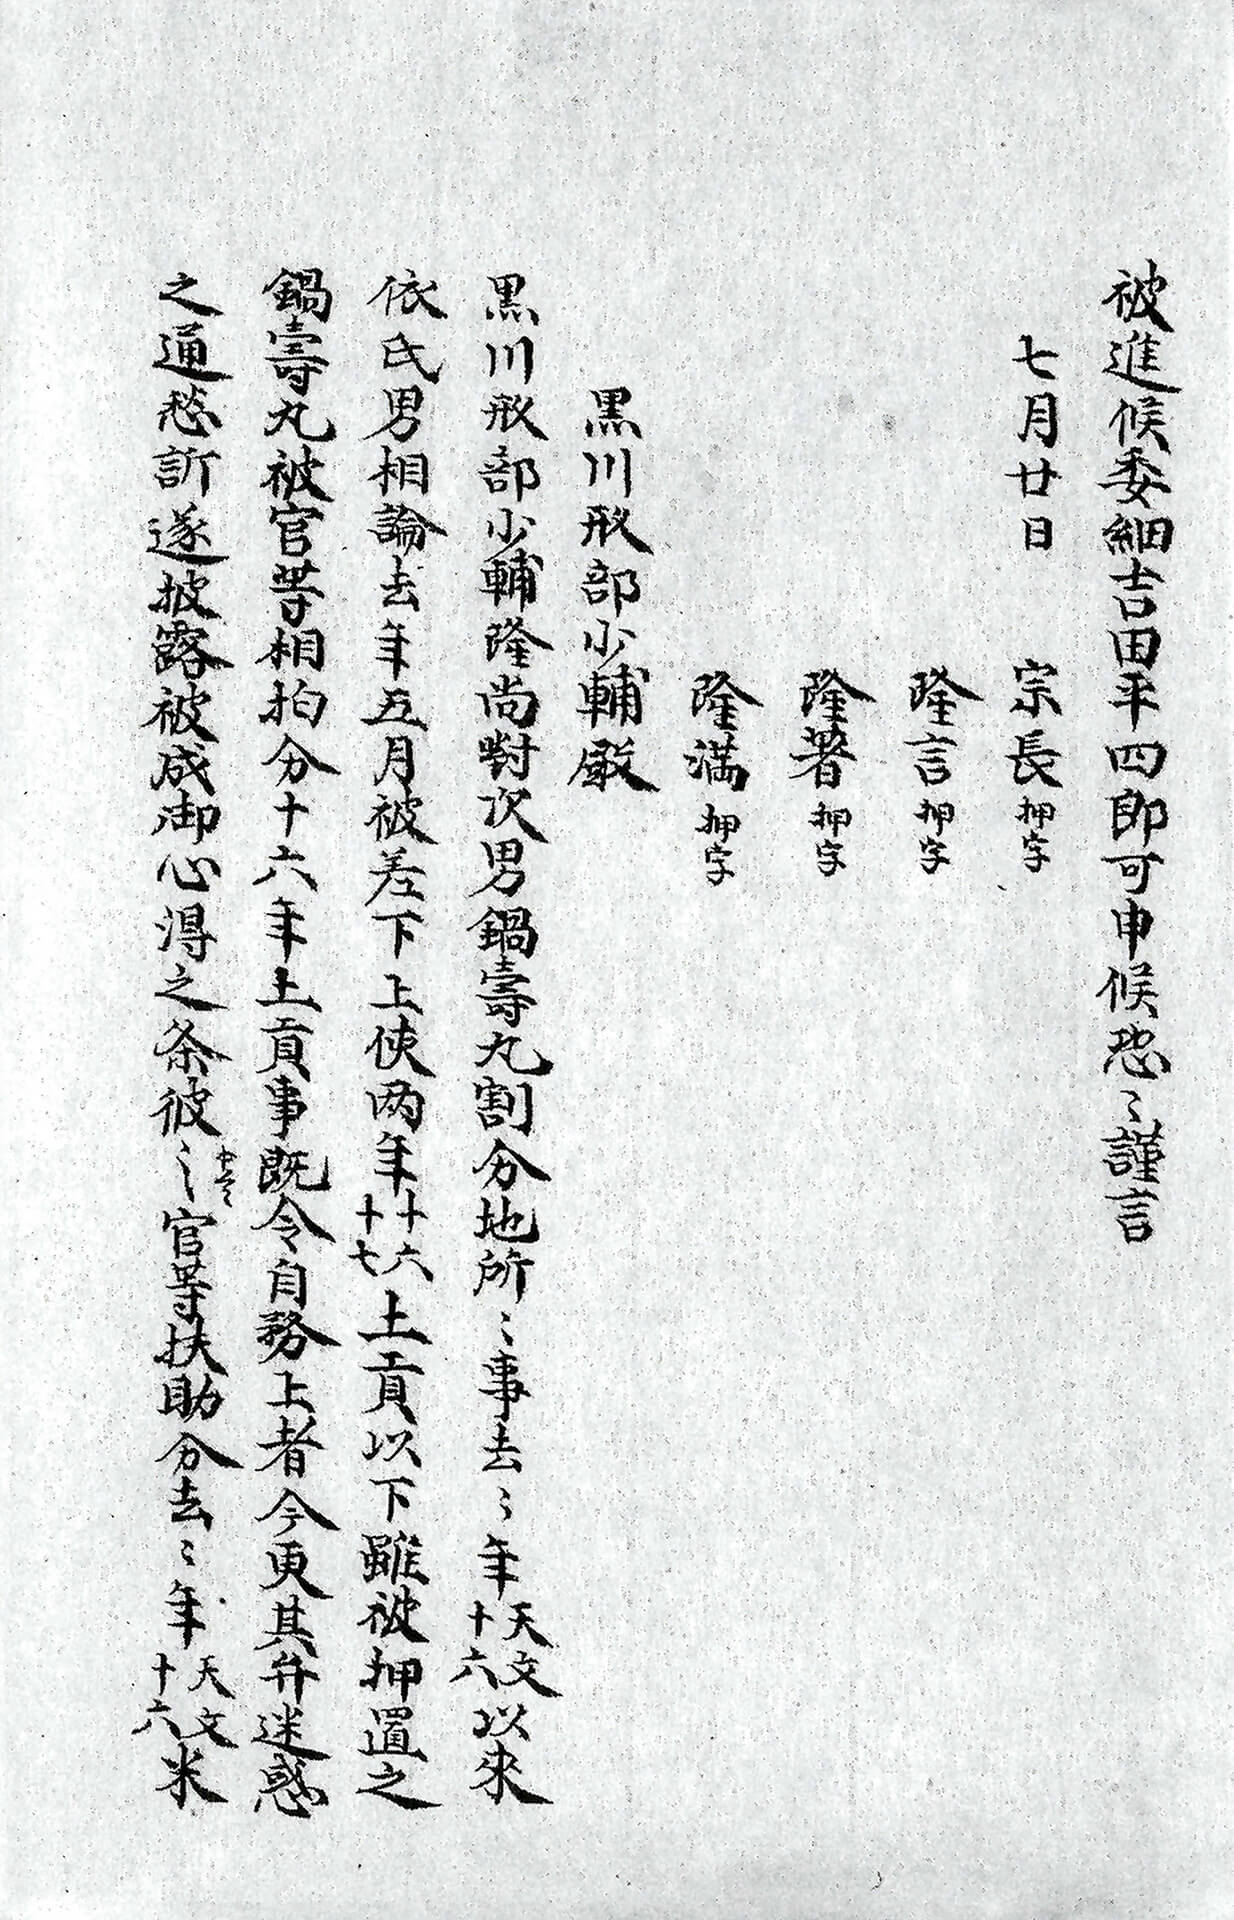 被進候委細吉田平四郎可申候恐〻謹言
七月廿日　宗長押字
隆言押字
隆著押字
隆満押字
黒川刑部少輔殿
黒川刑部少輔隆尚對次男鍋壽丸割分地所〻事去〻年天文十六以來
依氏男相論去年五月被差下上使両年十六十七土貢以下雖被押置之
鍋壽丸被官等相拘分十六年土貢事既令自務上者今更其弁迷惑
之通愁訴遂披露被成御心得之条彼〻官等扶助分去〻年天文十六米